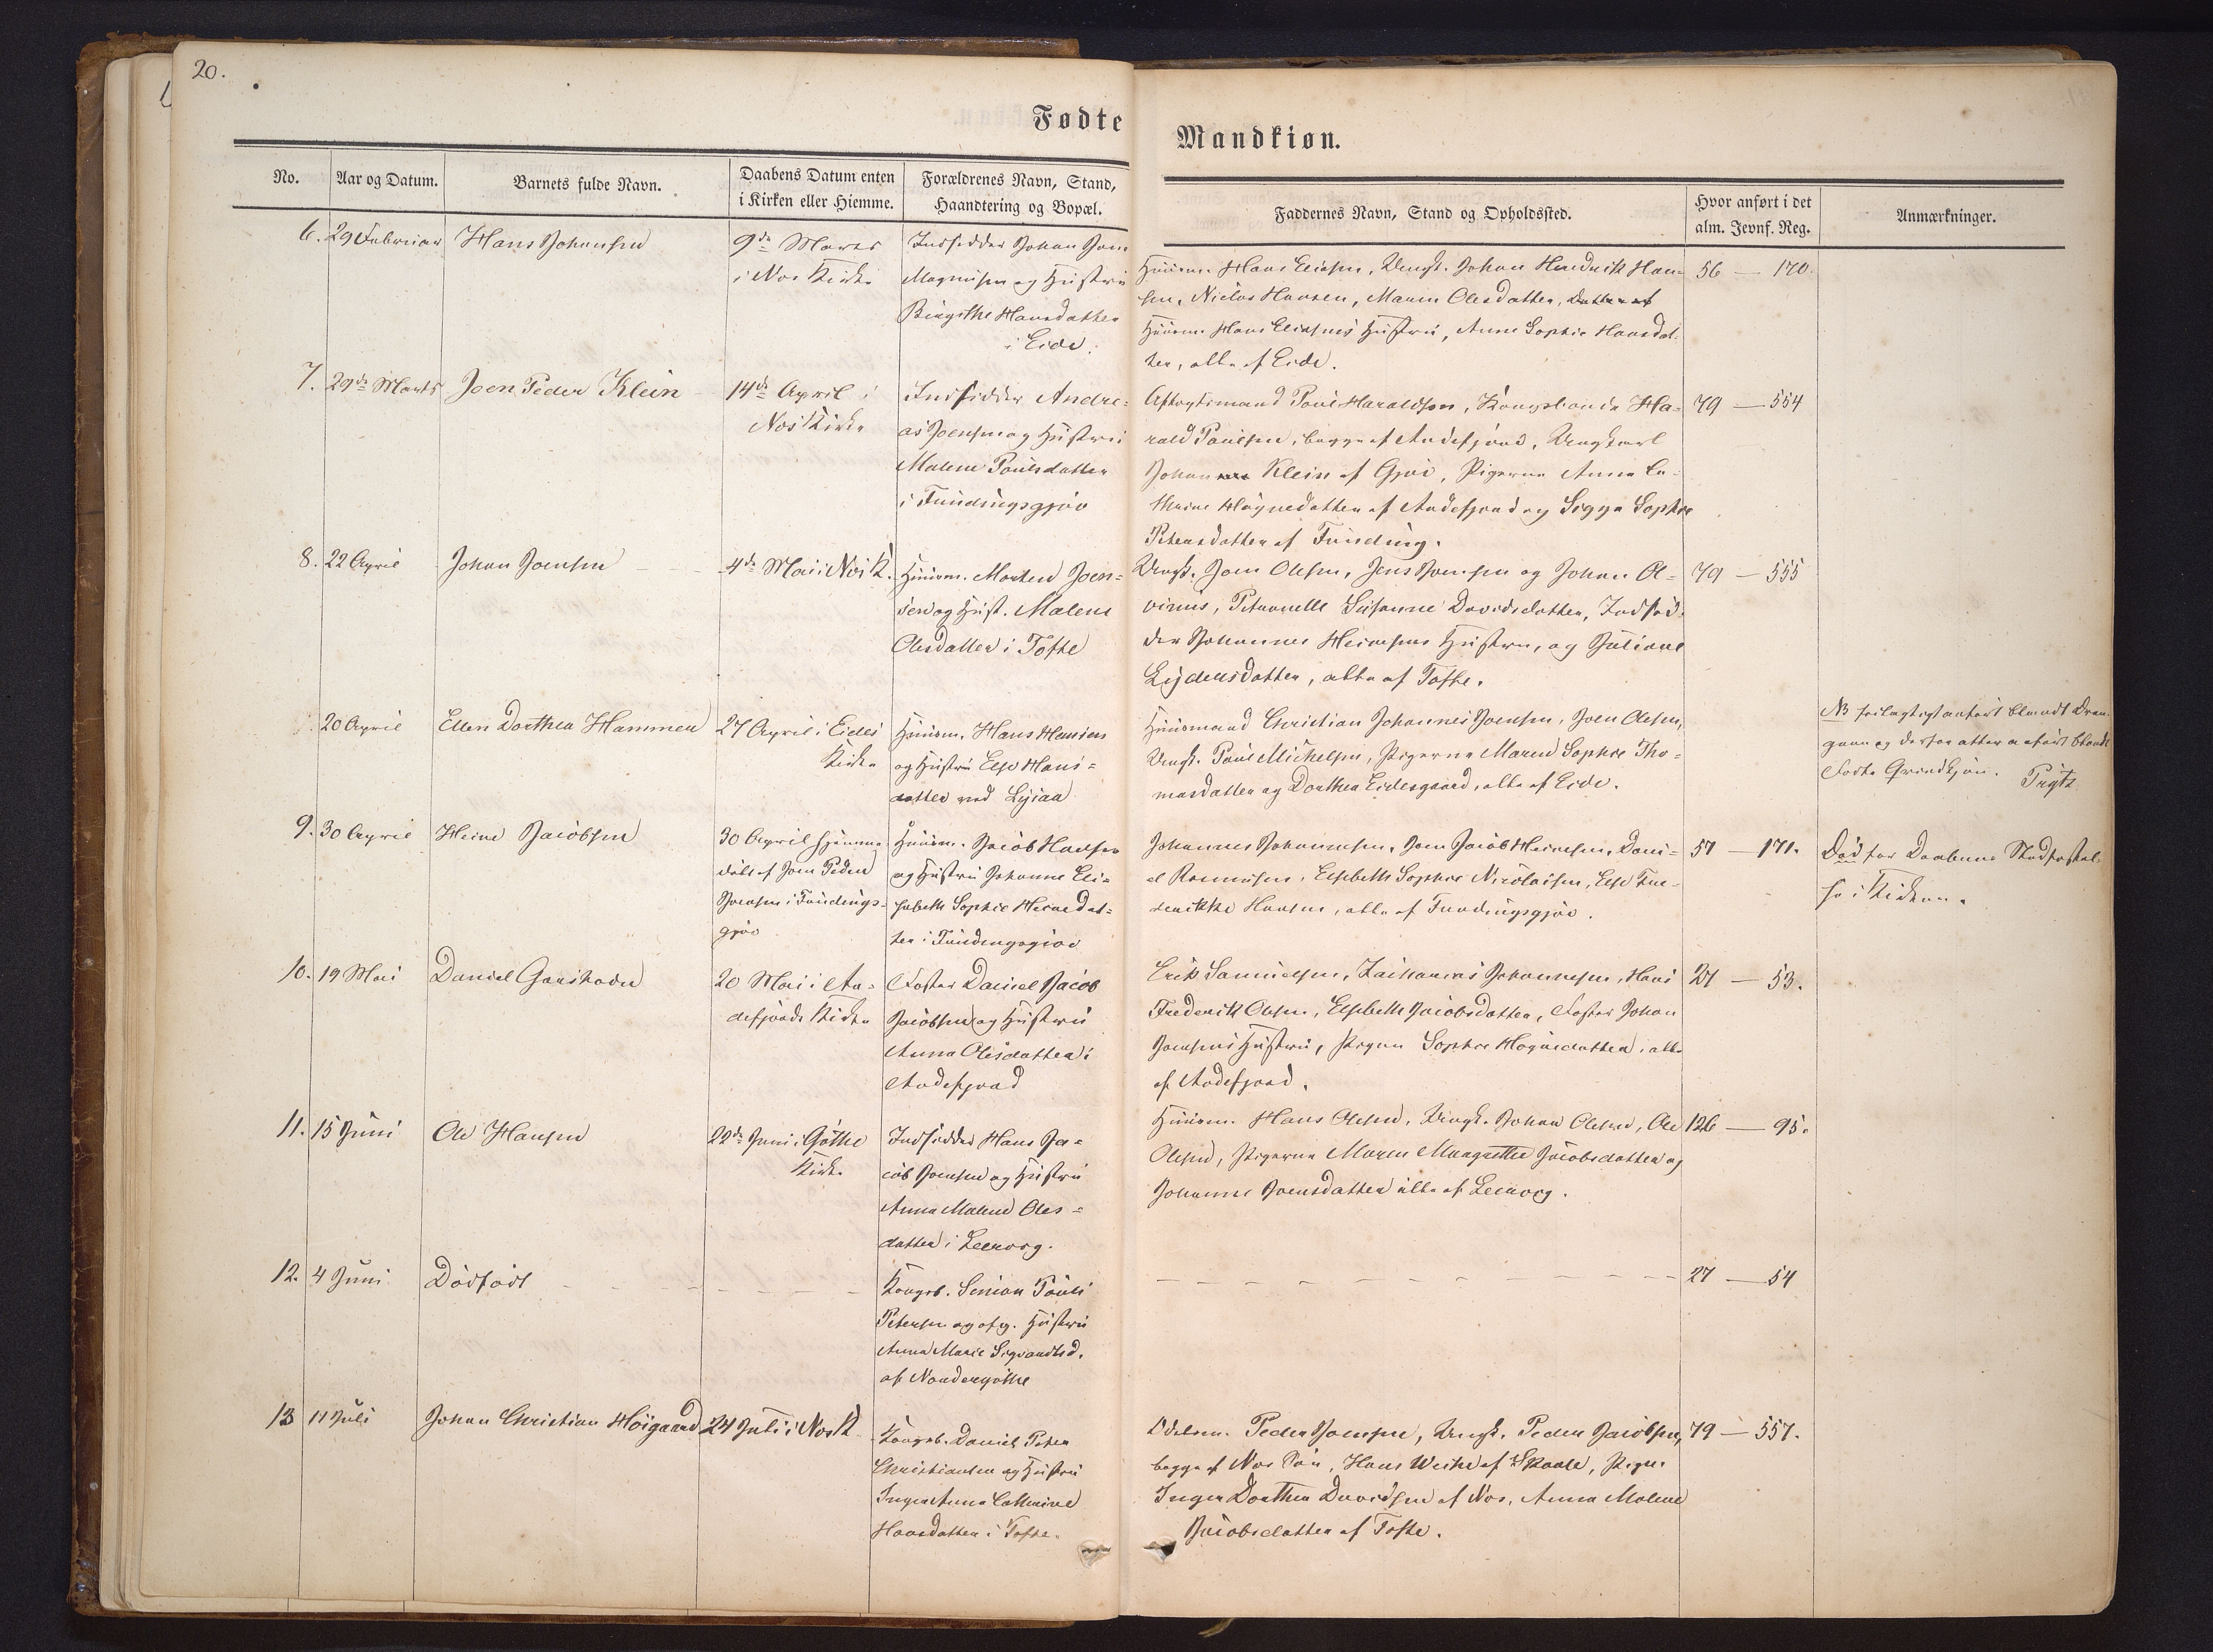 20.
Fødte
Mandkiøn.
No.
Aar og Datum.
Barnets fulde Navn.
Daabens Datum enten
i Kirken eller Hiemme.
Forældrenes Navn, Stand,
Haandtering og Bopæl.
Faddernes Navn, Stand og Opholdssted.
Hvor anført i det
alm. Jevnf. Reg.
Anmærkninger.
6.
29 Februar
Hans Johansen
9de Marts
i Nes Kirke
Indsidder Johan Joen
Magnusen og Hustru
Birgithe Hansdatter
i Eide.
Huusm. Hans Eliasen, Ungk. Johan Hendrik Han-
sen, Niclas Hansen, Maren Olesdatter, Datter af
Huusm. Hans Eliasens Hustru, Anne Sophie Hansdat-
ter, alle af Eide.
56 — 170.
7.
29de Marts
Joen Peder Klein
14de April i
Nes Kirke
Indsidder Andre-
as Joensen og Hustru
Malene Poulsdatter
i Fundingsgjov
Aftægtsmand Poul Haraldsen, Kongsbonde Ha-
rald Poulsen, begge af Andefjord, Ungkarl
Johan Klein af Gjov, Pigerne Anna Ca-
thrine Høgnedatter af Andefjord og Sigga Sophie
Petersdatter af Funding.
79 — 554
8.
22 April
Johan Joensen
4de Mai i Nes K.
Huusm. Morten Joen-
sen og Hust. Malene
Olesdatter i Tofte
Ungk. Joen Olesen, Jens Joensen og Johan Ol-
virius, Petronelle Susanne Davidsdatter, Indsid-
der Johannes Heinesens Hustru, og Juliane
Lydersdatter, alle af Tofte.
79 — 555
20 April
Ellen Dorthea Hammer
27 April i Eides
Kirke
Huusm. Hans Hansen
og Hustru Else Hans-
datter ved Lyiaa
Huusmand Christian Johannes Joensen, Joen Olesen,
Ungk. Poul Michelsen, Pigerne Maren Sophie Tho-
masdatter og Dorthea Eidesgaard, alle af Eide.
NB feilagtigt anført blandt Dren-
gene og derfor atter anført blandt
Fødte Qvindkjøn. Prytz
9.
30 April
Heine Jacobsen
30 April hjemme-
døbt af Joen Peder
Joensen i Fundings-
gjov
Huusm. Jacob Hansen
og Hustru Johanne Eli-
sabeth Sophie Heinedat-
ter i Fundingsgjov
Johannes Johannesen, Joen Jacob Heinesen, Dani-
el Rasmusen, Elsebeth Sophie Nicolaisen, Else Fre-
derikke Hansen, alle af Fundingsgjov.
57 — 171.
Død før Daabens Stadfæstel-
se i Kirken.
10.
19 Mai
Daniel Gaashader
20 Mai i An-
defjords Kirke
Fæster Daniel Jacob
Jacobsen og Hustru
Anna Olesdatter i
Andefjord
Erik Samuelsen, Zacharias Johannesen, Hans
Frederik Olesen, Elsebeth Jacobsdatter, Fæster Johan
Joensens Hustru, Pigen Sophie Høgnedatter, alle
af Andefjord.
27 — 53.
11.
15 Juni
Ole Hansen
22de Juni i Gøthe
Kirke
Indsidder Hans Ja-
cob Joensen og Hustru
Anna Malene Oles-
datter i Leervig.
Huusm. Hans Olesen, Ungk. Johan Olesen, Ole
Olesen, Pigerne Maren Margrethe Jacobsdatter og
Johanne Joensdatter alle af Leervig.
126 — 95.
12.
4 Juni
Dødfødt
Kongsb. Simon Pouli
Petersen og afg. Hustru
Anna Marie Sigvardtsd.
af Nordregøthe
27 — 54
13
11 Juli
Johan Christian Høigaard
24 Juli i Nes K
Kongsb. Daniel Peter
Christiansen og Hustru
Inger Anna Cathrine
Hansdatter i Tofte.
Odelsm. Peder Joensen, Ungk. Peder Jacobsen,
begge af Nes, Hans Weihe af Skaale, Pigen
Inger Dorthea Davidsen af Nes, Anna Malene
Jacobsdatter af Tofte.
79 — 557.